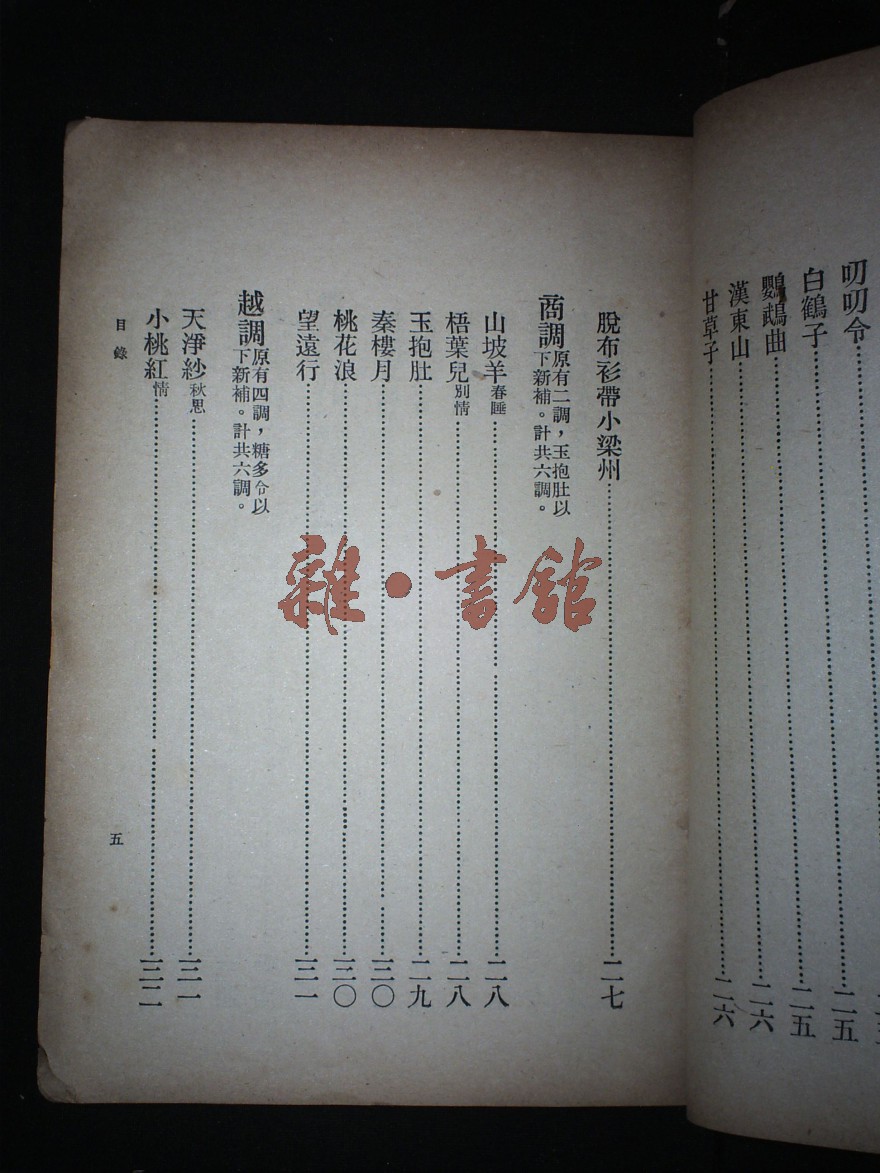 叨叨令……二五
白鶴子……二五
鸚鵡曲……二六
漢東山……二六
甘草子
脫布衫帶小梁州……二七
商調原有二調，玉抱肚以下新補。計共六調。
山坡羊春睡……二八
梧葉兒別情……二八
玉抱肚……二九
秦樓月……三〇
桃花浪……三〇
望遠行……三一
越調原有四調，糖多令以下新補。計共六調。
天淨紗秋思……三一
小桃紅情……三二
目錄
五
雜·書館